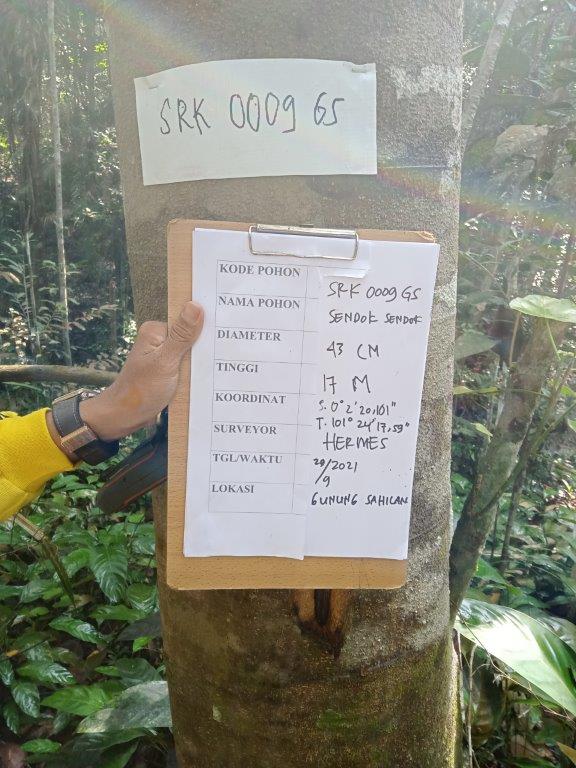 SRK 0009 GS
KODE POHON SRK 0009 GS
NAMA POHON SENDOK SENDOK
DIAMETER 43 CM
TINGGI 17 M
KOORDINAT S. 0° 2' 20,101"
T. 101° 24' 17,59"
SURVEYOR HERMES
TGL/WAKTU 20/2021
/9
LOKASI GUNUNG SAHILAN